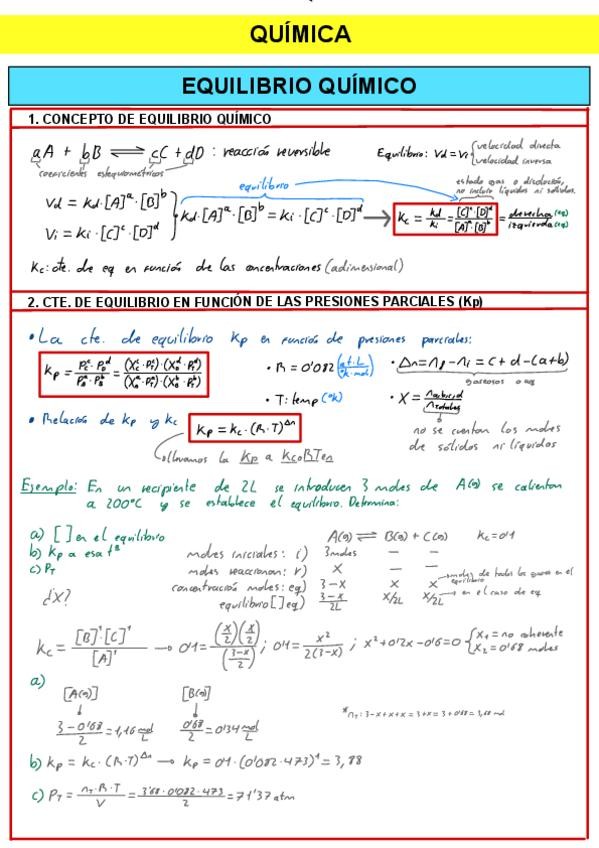 QUÍMICA
EQUILIBRIO QUÍMICO
1. CONCEPTO DE EQUILIBRIO QUÍMICO
aA + bB ⇌ cC + dD : reacción reversible
coeficientes estequiométricos
Equilibrio: Vd = Vi { velocidad directa
velocidad inversa
equilibrio
estado gas o disolución,
no incluir líquidos ni sólidos.
Vd = Kd·[A]ᵃ·[B]ᵇ
Vi = Ki·[C]ᶜ·[D]ᵈ
} Kd·[A]ᵃ·[B]ᵇ = Ki·[C]ᶜ·[D]ᵈ → Kc = Kd/Ki = [C]ᶜ[D]ᵈ/[A]ᵃ[B]ᵇ = derecha (eq)/izquierda (eq)
Kc: cte. de eq en función de las concentraciones (adimensional)
2. CTE. DE EQUILIBRIO EN FUNCIÓN DE LAS PRESIONES PARCIALES (Kp)
• La cte. de equilibrio Kp en función de presiones parciales:
• R = 0'082 (at·L/ºK·mol)
• Δn = nf - ni = c + d - (a+b)
gaseosos o aq
• T: temp (ºK)
no se cuentan los moles
de sólidos ni líquidos
• Relación de Kp y Kc
Kp = Kc·(R·T)^Δn
Ejemplo: En un recipiente de 2L se introducen 3 moles de A(g) se calientan
a 200ºC y se establece el equilibrio. Determina:
a) [ ] en el equilibrio
b) Kp a esa tª
c) PT
¿X?
A(g) ⇌ B(g) + C(g) Kc = 0'1
moles iniciales: i) 3 moles – –
moles reaccionan: r) X – –
concentración moles: eq) 3-X X X
moles de todos los gases en el
equilibrio
equilibrio [ ] eq) 3-X/2L X/2L X/2L → en el caso de eq
Kc = [B]¹·[C]¹/[A]¹ → 0'1 = (X/2)(X/2)/(3-X/2) ; 0'1 = X²/2(3-X) ; X² + 0'2X - 0'6 = 0 { X₁ = no coherente
X₂ = 0'68 moles
a)
[A(g)] [B(g)]
3-0'68/2 = 1,16 mol/L 0'68/2 = 0'34 mol/L
*nT: 3-X+X+X = 3+X = 3+0'68 = 3,68 mol
b) Kp = Kc·(R·T)^Δn → Kp = 0'1·(0'082·473)¹ = 3,88
c) PT = nT·R·T/V = 3'68·0'082·473/2 = 71'37 atm